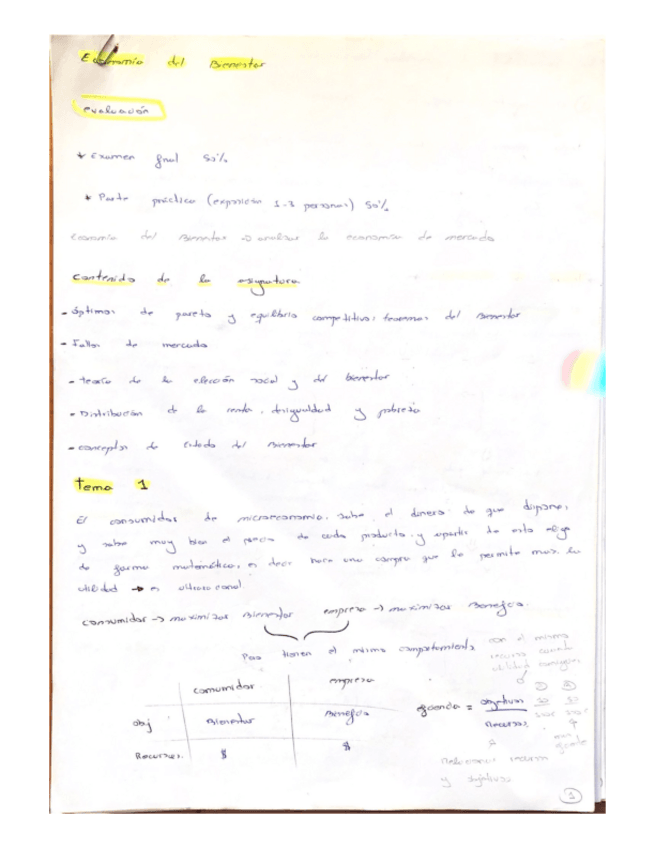 Economía del Bienestar
evaluación
* Examen final 50%
* Parte práctica (exposición 1-3 personas) 50%
Economía del Bienestar → analizar la economía de mercado
Contenido de la asignatura
- óptimos de pareto y equilibrio competitivo: teoremas del Bienestar
- Fallos de mercado
- teoría de la elección social y del bienestar
- Distribución de la renta, desigualdad y pobreza
- conceptos de Estado del Bienestar
tema 1
El consumidor de microeconomía, sabe el dinero de que dispone,
y sabe muy bien el precio de cada producto y apartir de esto elige
de forma matemática, es decir hara una compra que le permita max. la
utilidad → es ultraracional.
consumidor → maximizar Bienestar empresa → maximizar Beneficio.
tienen el mismo comportamiento
con el mismo
recurso cuanta
utilidad consiguen
consumidor empresa
obj Bienestar Beneficio
Recursos. $ $
= objetivos
Recursos.
Relacionar recursos
y objetivos
1